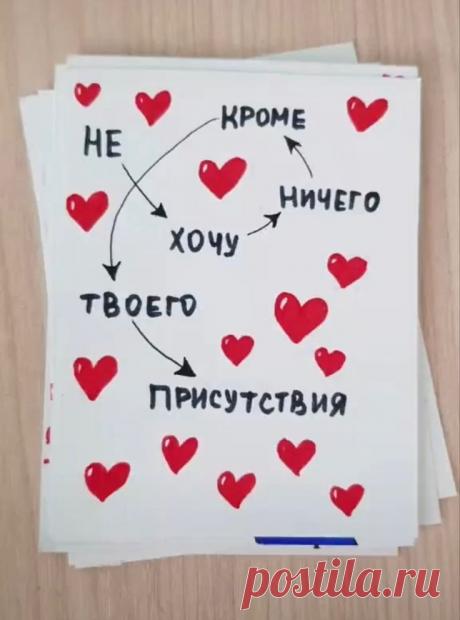 НЕ
ХОЧУ
НИЧЕГО
КРОМЕ
ТВОЕГО
ПРИСУТСТВИЯ
postila.ru